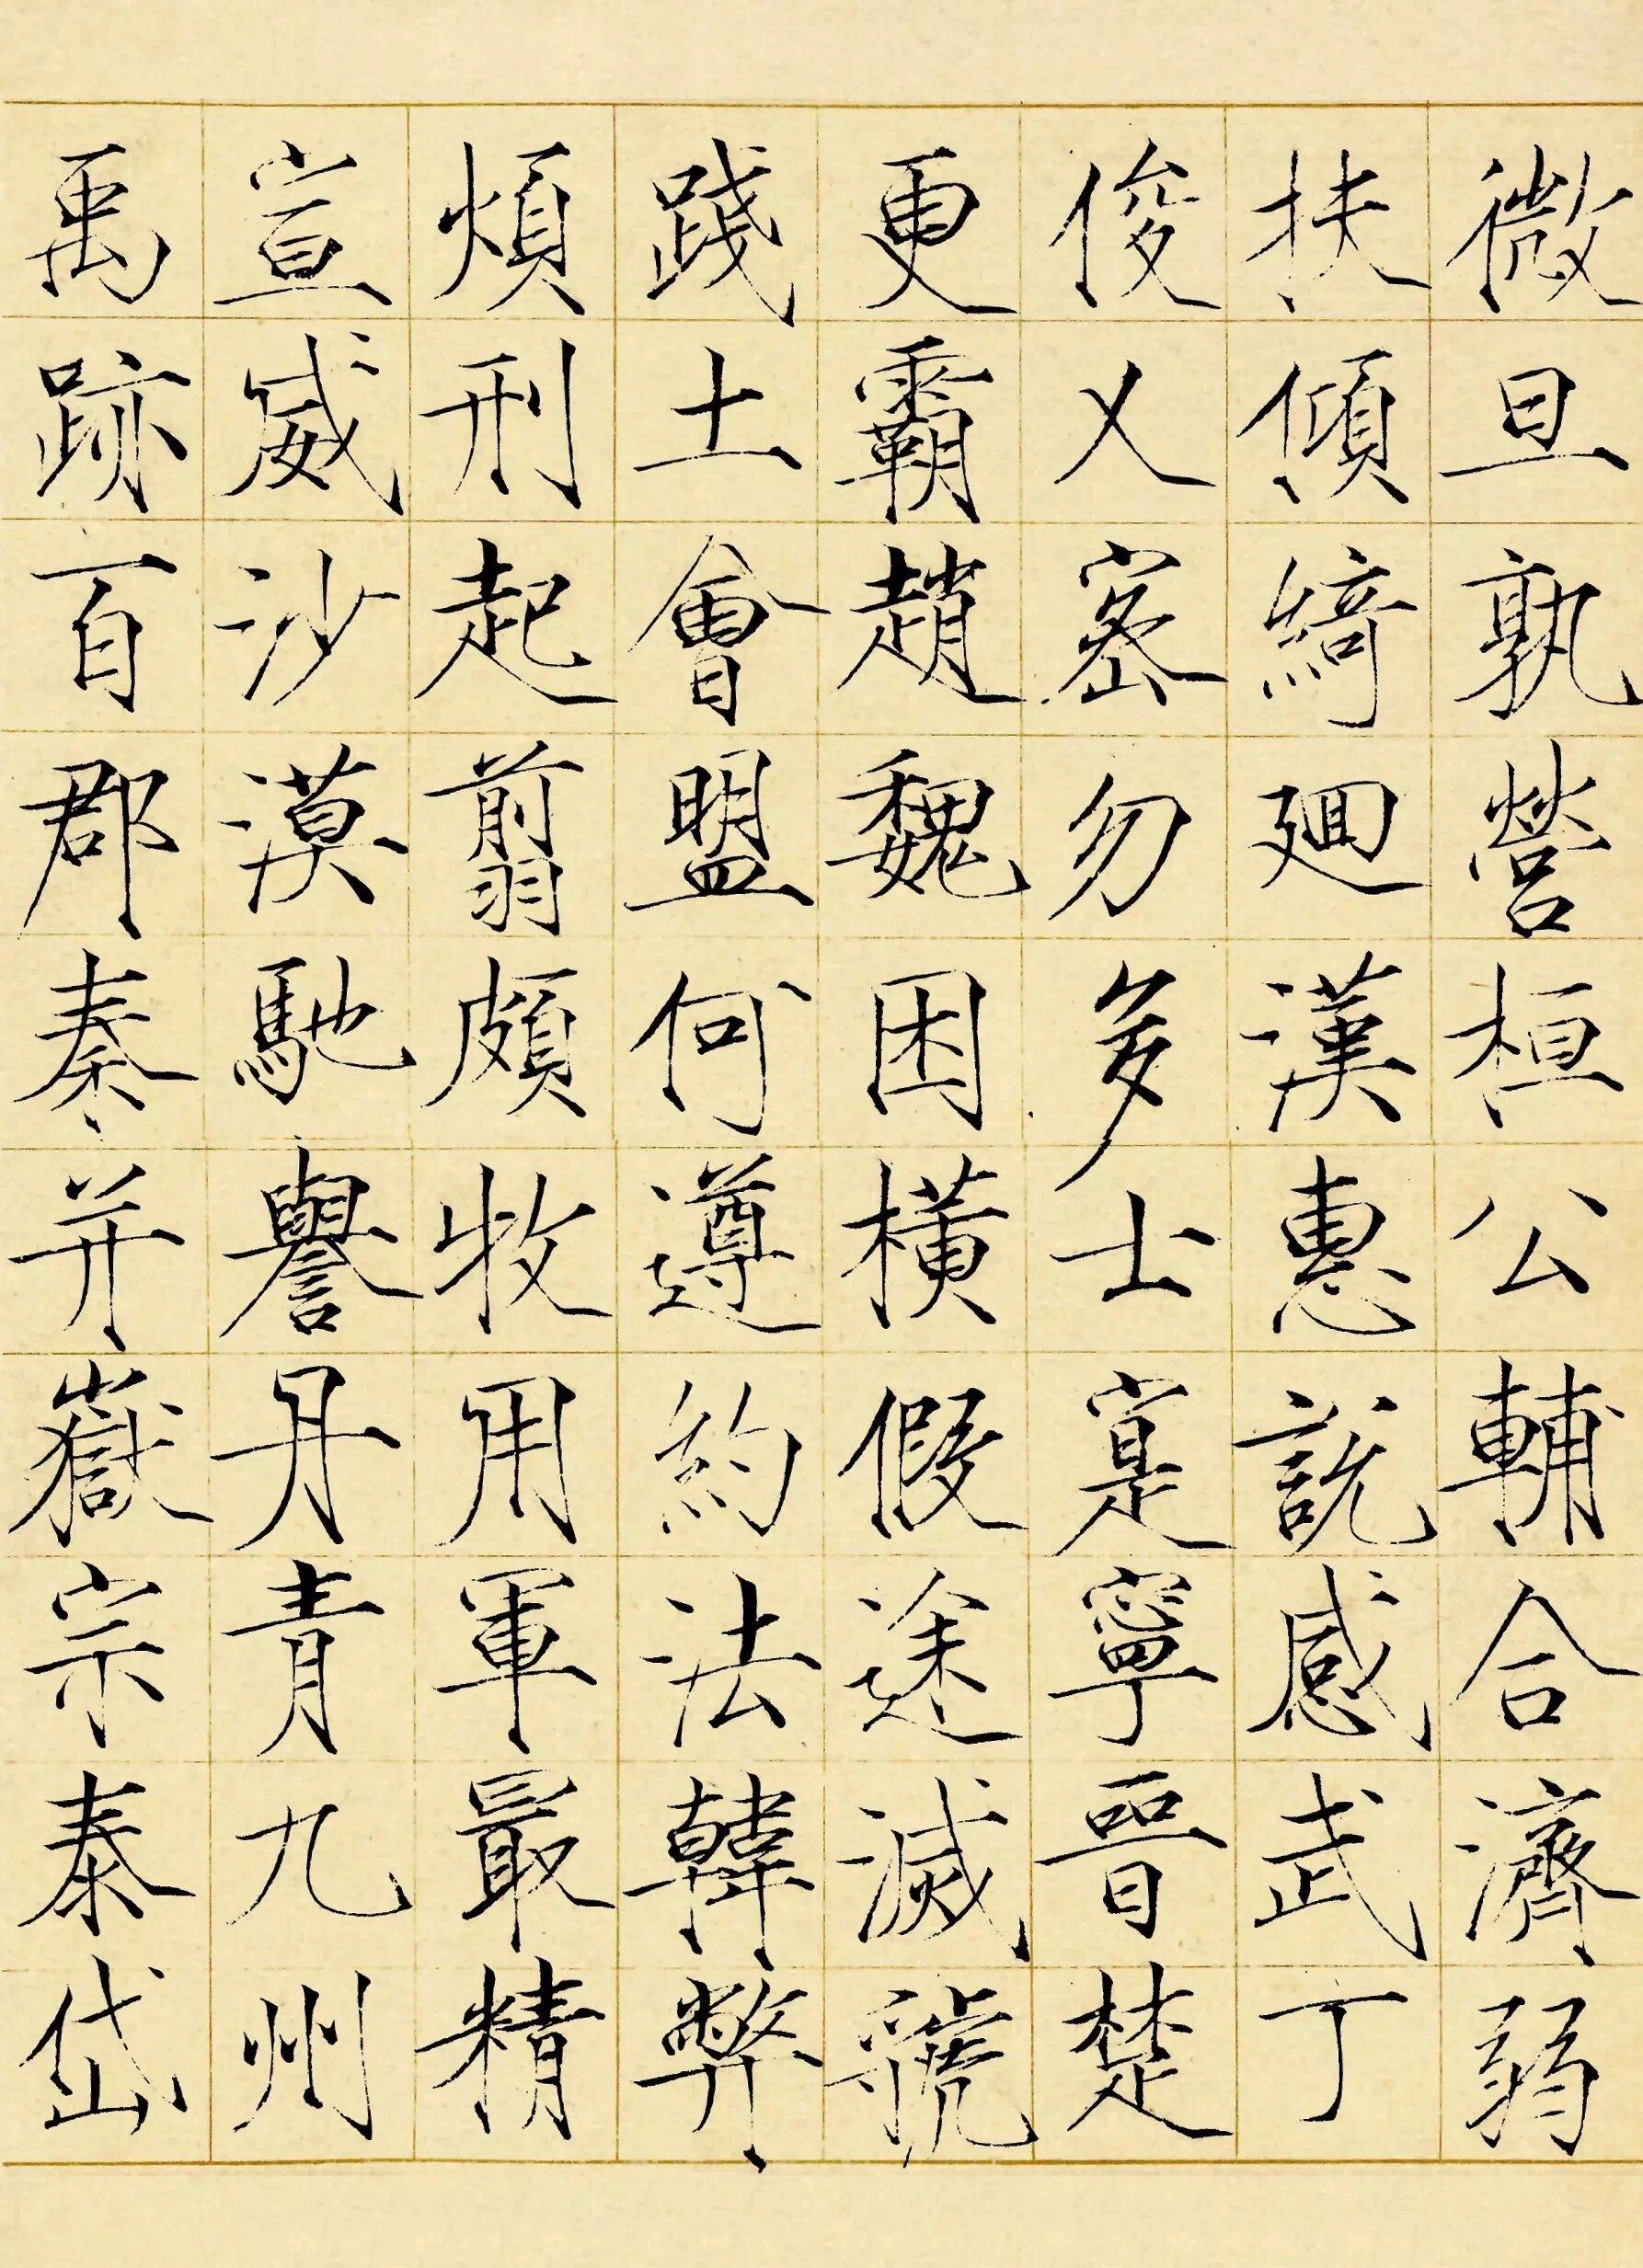 微旦孰營桓公輔合濟弱
扶傾綺廻漢惠說感武丁
俊乂密勿多士寔寧晉楚
更霸趙魏困橫假途滅虢
踐土會盟何遵約法韓弊
煩刑起翦頗牧用軍最精
宣威沙漠馳譽丹青九州
禹跡百郡秦并嶽宗泰岱